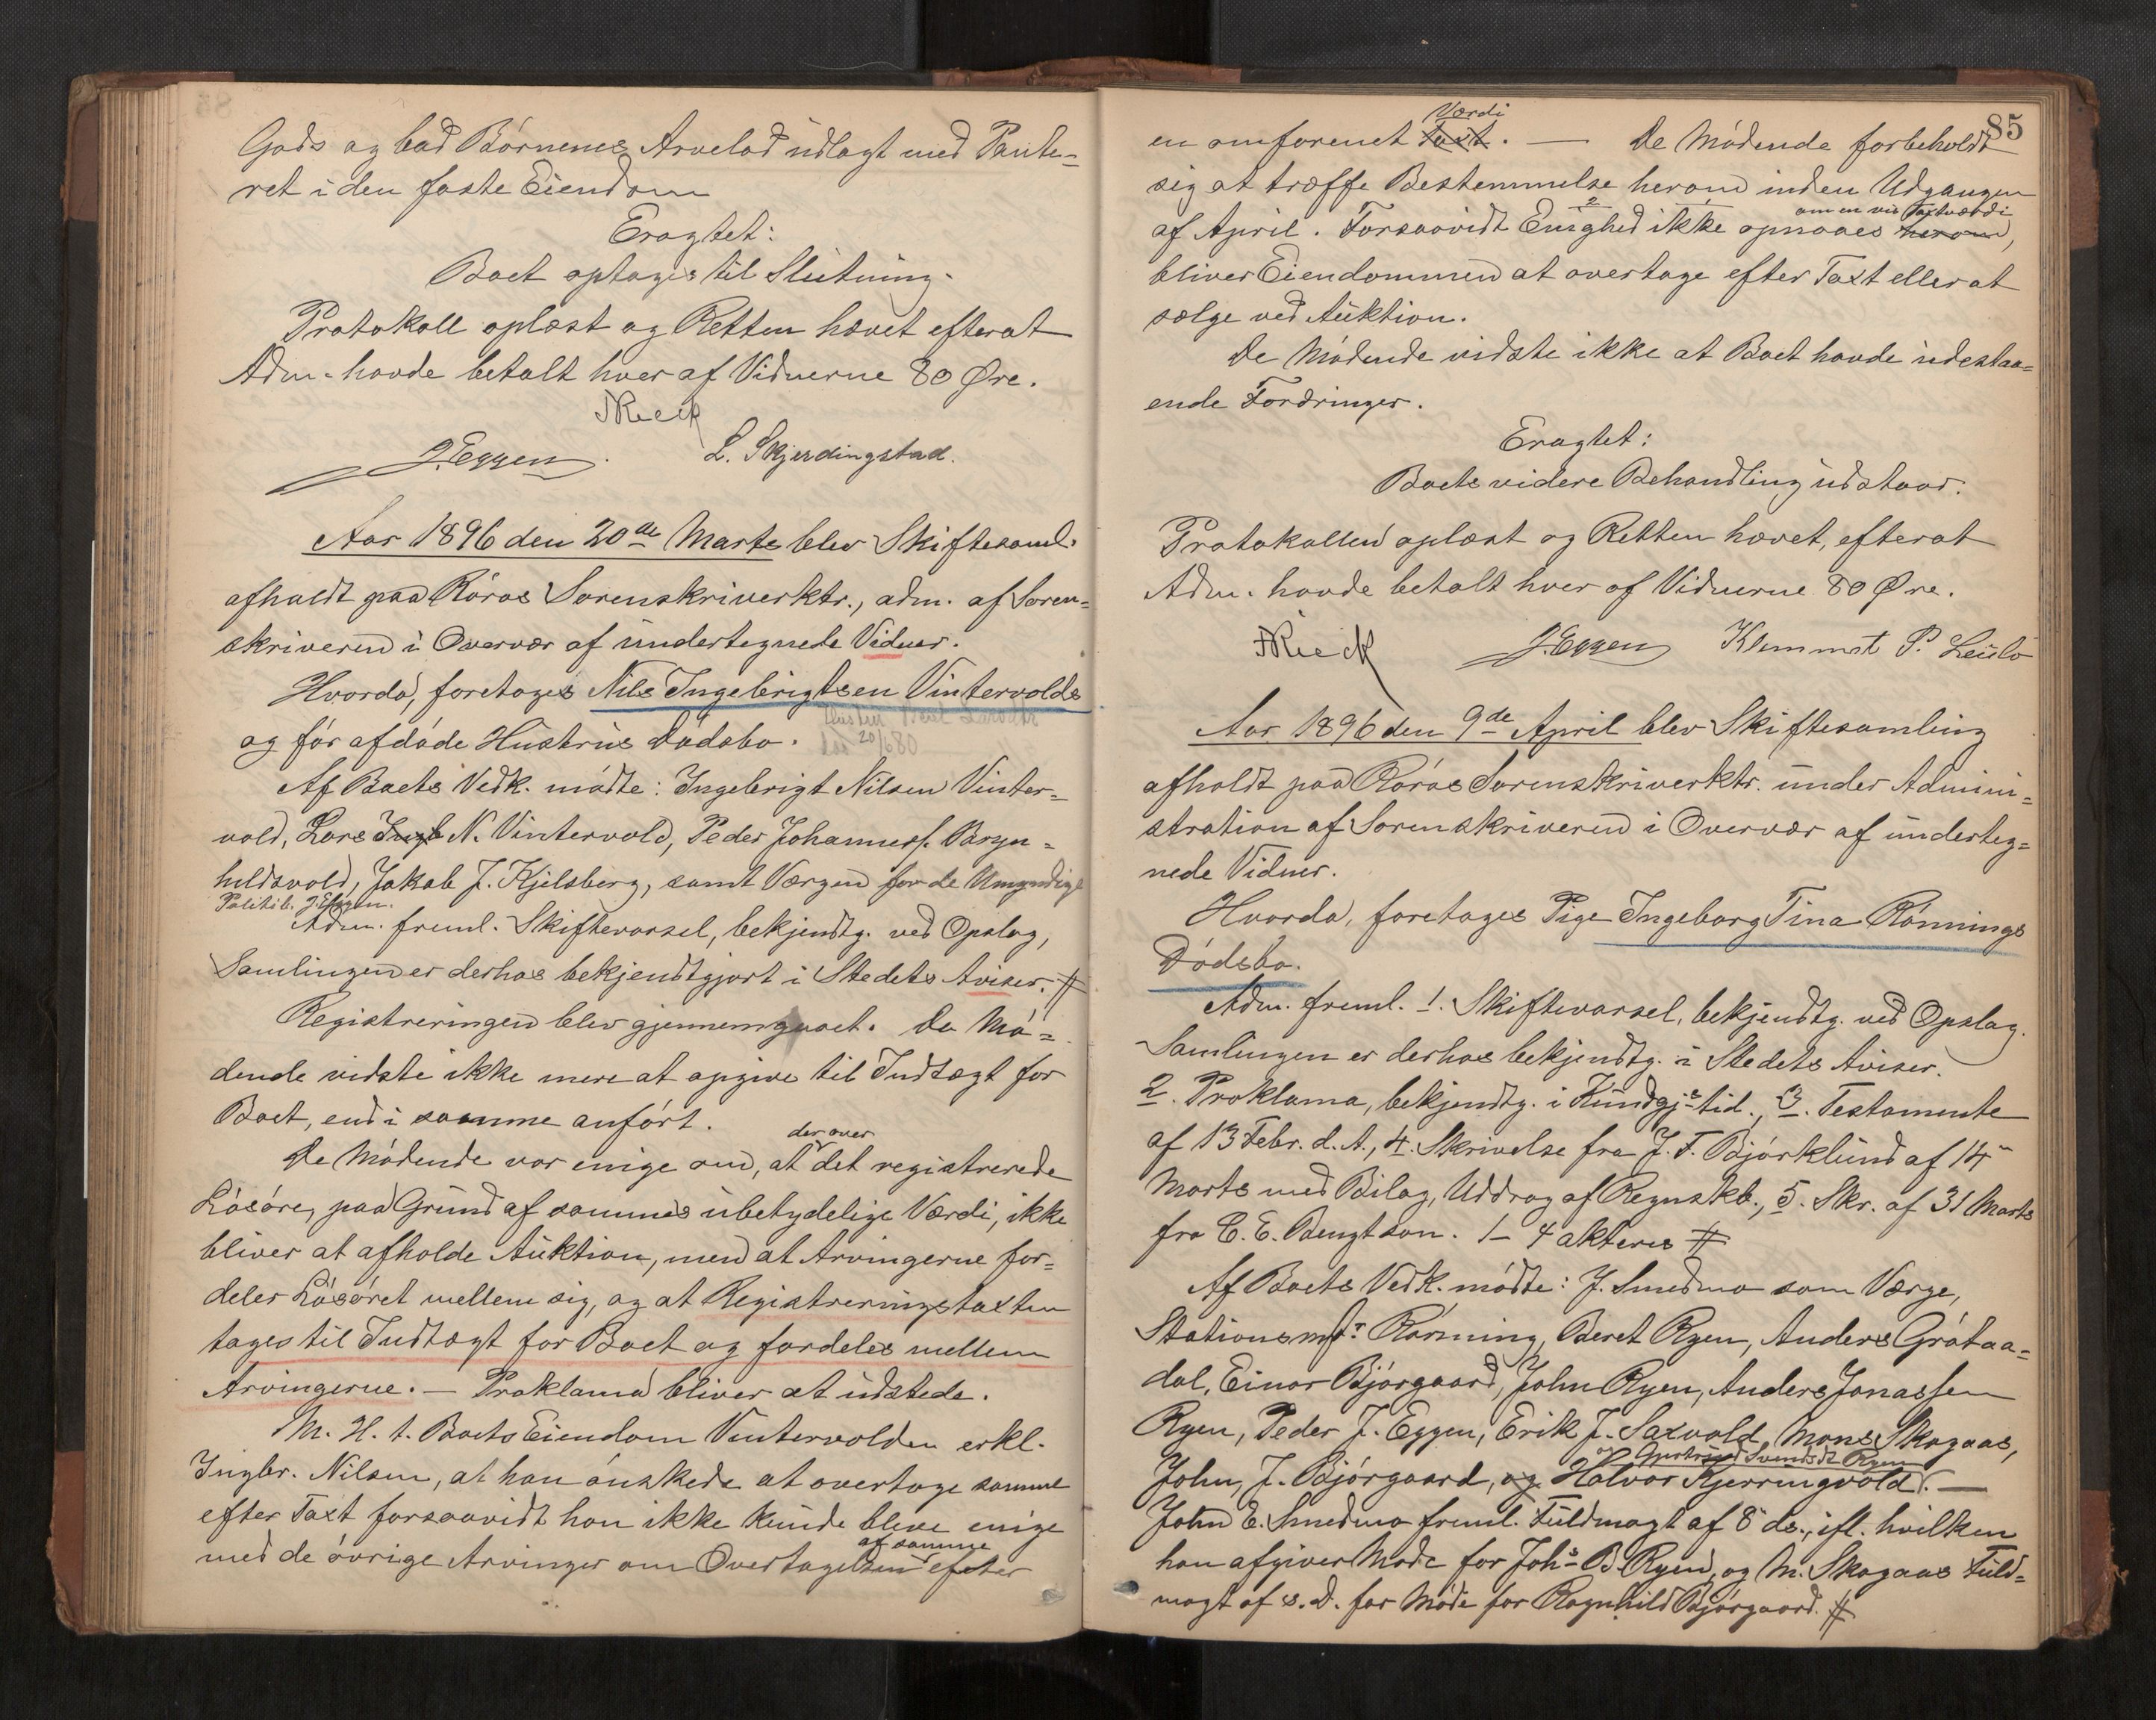 Gods og bad Börnenes Arvelod udlagt med Pante=
ret i den faste Eiendom
Eragtet:
Boet optages til Slutning.
Protokoll oplæst og Retten hævet efterat
Adm. havde betalt hver af Vidnerne 80 Øre.
Rieck
J. Eggen. L. Skjerdingstad.
Aar 1896 den 20de Marts blev Skiftesaml.
afholdt paa Röros Sorenskriverktr., adm. af Soren=
skriveren i Overvær af undertegnede Vidner.
Hvorda, foretoges Nils Ingebrigtsen Vintervolds
og för afdöde Hustrus Dödsbo.
20/6 80
Af Boets Vedk. mödte: Ingebrigt Nilsen Vinter=
vold, Lars Ingb N. Vintervold, Peder Johannesf. Bryn=
hildsvold, Jakob J. Kjelsberg, samt Værgen for de Umyndige
Politib. J. Eggen.
Adm. freml. Skiftevarsel, bekjendtg. ved Opslag,
Samlingen er derhos bekjendtgjort i Stedets Aviser. #
Registreringen blev gjennemgaaet. De Mö=
dende vidste ikke mere at opgive til Indtægt for
Boet, end i samme anfört.
De Mödende var enige om, at der over det registrerede
Lösöre, paa Grund af sammes ubetydelige Værdi, ikke
bliver at afholde Auktion, men at Arvingerne for=
deler Lösöret mellem sig, og at Registreringstaxten
tages til Indtægt for Boet og fordeles mellem
Arvingerne. — Proklama bliver at udstede.
M. H. t. Boets Eiendom Vintervolden erkl.
Ingbr. Nilsen, at han önskede at overtage samme
efter Taxt forsaavidt han ikke kunde blive enige
med de övrige Arvinger om Overtagelsen af samme efter
85
en omforenet Taxt Værdi. — De Mödende forbeholdt
sig at træffe Bestemmelse herom inden Udgangen
af April. Forsaavidt Enighed ikke opnaaes herom om en vis Taxtværdi,
bliver Eiendommen at overtage efter Taxt eller at
sælge ved Auktion.
De Mödende vidste ikke at Boet havde udestaa=
ende Fordringer.
Eragtet:
Boets videre Behandling udstaar.
Protokollen oplæst og Retten hævet, efterat
Adm. havde betalt hver af Vidnerne 80 Øre.
Rieck J. Eggen Klemmet P.
Aar 1896 den 9de April blev Skiftesamling
afholdt paa Röros Sorenskriverktr. under Admini=
stration af Sorenskriveren i Overvær af underteg=
nede Vidner.
Hvorda, foretoges Pige Ingeborg Tina Rönnings
Dödsbo.
Adm. freml. 1. Skiftevarsel, bekjendtg. ved Opslag.
Samlingen er derhos bekjendtg. i Stedets Aviser.
2. Proklama, bekjendtg. i Kundgjs tid., 3. Testamente
af 13 Febr. d. A., 4. Skrivelse fra J. F. Björklund af 14
Marts med Bilag, Uddrag af Regnskb., 5. Skr. af 31 Marts
fra C. E. Bengtson. 1 – 4 akteres #
Af Boets Vedk. mödte: J. Smedmo som Værge,
Stationsmstr Rönning, Beret Ryen, Anders Grötaa=
dal, Einar Björgaard, John Ryen, Anders Jonassen
Ryen, Peder J. Eggen, Erik J. Saxvold, Mons Skogaas,
John, J. Björgaard, og Halvor Kjerringvold. —
John E. Smedmo freml. Fuldmagt af 8 ds., ifl. hvilken
han afgiver Möde for Johs B. Ryen, og M. Skogaas Fuld=
magt af s. D. for Möde for Ragnhild Björgaard. #